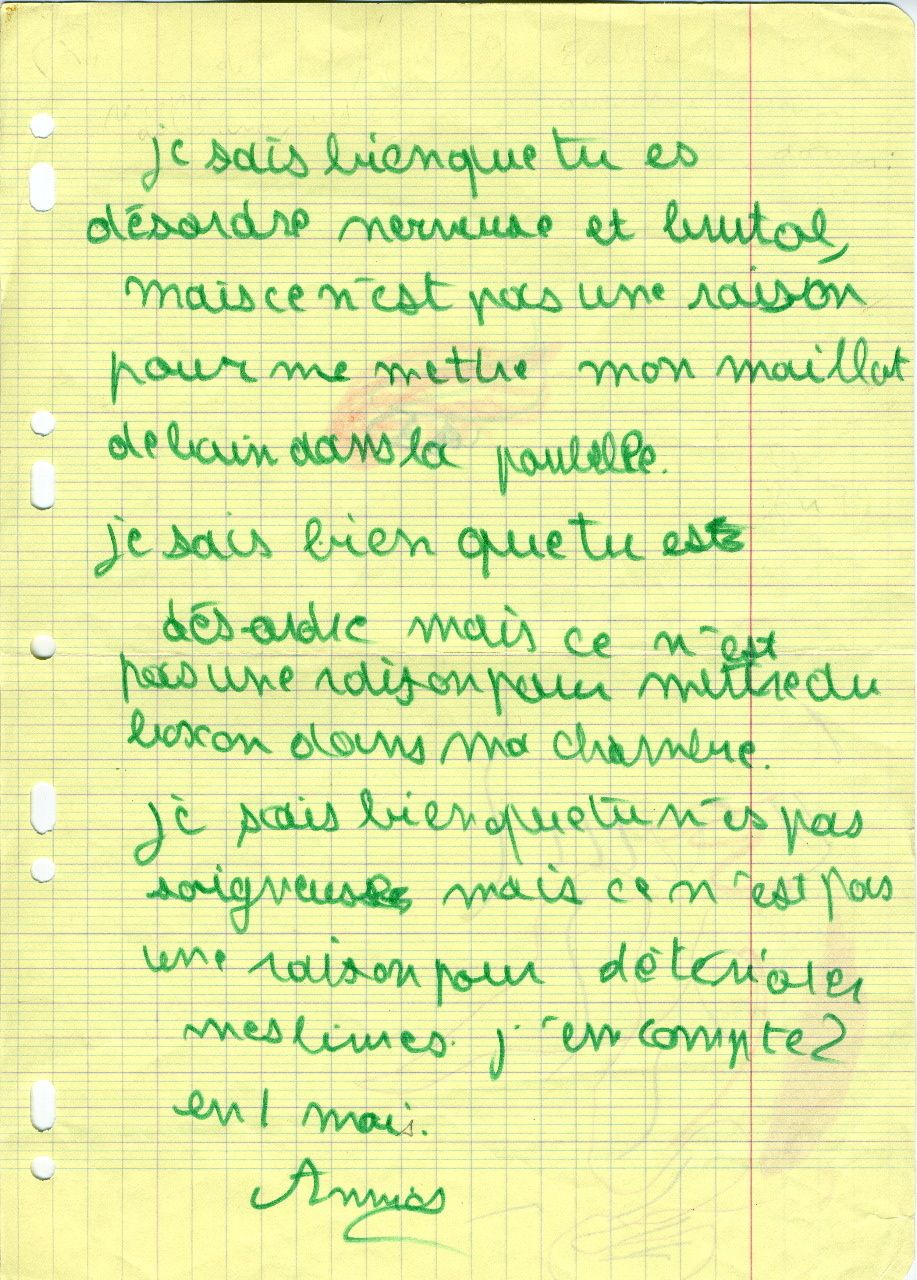 je sais bien que tu es
désordre nerveuse et brutal,
mais ce n'est pas une raison
pour me mettre mon maillot
de bain dans la poubelle.
je sais bien que tu es
désordre mais ce n'est
pas une raison pour mettre du
boxon dans ma chambre.
je sais bien que tu n'es pas
soigneuse mais ce n'est pas
une raison pour détériorer
mes livres. j'en compte 2
en 1 mois.